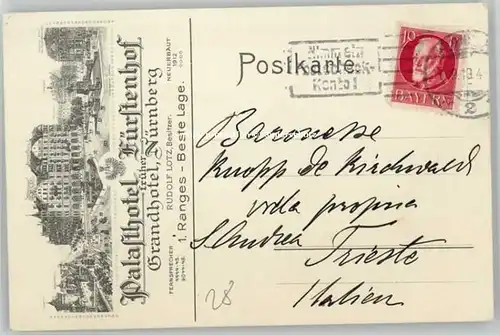 Palasthotel Fürstenhof
früher
Grandhotel, Nürnberg
RUDOLF LOTZ, Besitzer.
NEUERBAUT
1912
1. Ranges - Beste Lage.
FERNSPRECHER
Postkarte
Nimm ein
Postscheck-
Konto!
10
BAYERN
2
Baronesse
Knopp de Kirchwald
vila propria
S. Andrea Trieste
Italien
28